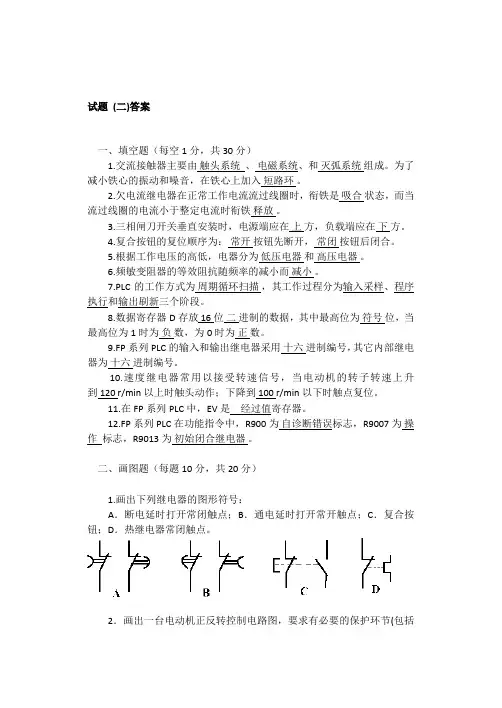 试题 (二)答案
一、填空题（每空1分，共30分）
1.交流接触器主要由 触头系统 、 电磁系统、和 灭弧系统 组成。为了
减小铁心的振动和噪音，在铁心上加入 短路环 。
2.欠电流继电器在正常工作电流流过线圈时，衔铁是 吸合 状态，而当
流过线圈的电流小于整定电流时衔铁 释放 。
3.三相闸刀开关垂直安装时，电源端应在 上 方，负载端应在 下 方。
4.复合按钮的复位顺序为： 常开 按钮先断开， 常闭 按钮后闭合。
5.根据工作电压的高低，电器分为 低压电器 和 高压电器 。
6.频敏变阻器的等效阻抗随频率的减小而 减小 。
7.PLC 的工作方式为 周期循环扫描 ，其工作过程分为输入采样、程序
执行和输出刷新三个阶段。
8.数据寄存器 D 存放 16 位 二 进制的数据，其中最高位为 符号 位，当
最高位为 1 时为 负 数，为 0 时为 正 数。
9.FP 系列 PLC 的输入和输出继电器采用 十六 进制编号，其它内部继电
器为 十六 进制编号。
10.速度继电器常用以接受转速信号，当电动机的转子转速上升
到 120 r/min 以上时触头动作；下降到 100 r/min 以下时触点复位。
11.在 FP 系列 PLC 中，EV 是 经过值 寄存器。
12.FP 系列 PLC 在功能指令中，R900 为 自诊断错误 标志，R9007 为 操
作 标志，R9013 为 初始闭合继电器 。
二、画图题（每题 10 分，共 20 分）
1.画出下列继电器的图形符号：
A．断电延时打开常闭触点；B．通电延时打开常开触点；C．复合按
钮；D．热继电器常闭触点。
A B C D
2．画出一台电动机正反转控制电路图，要求有必要的保护环节(包括